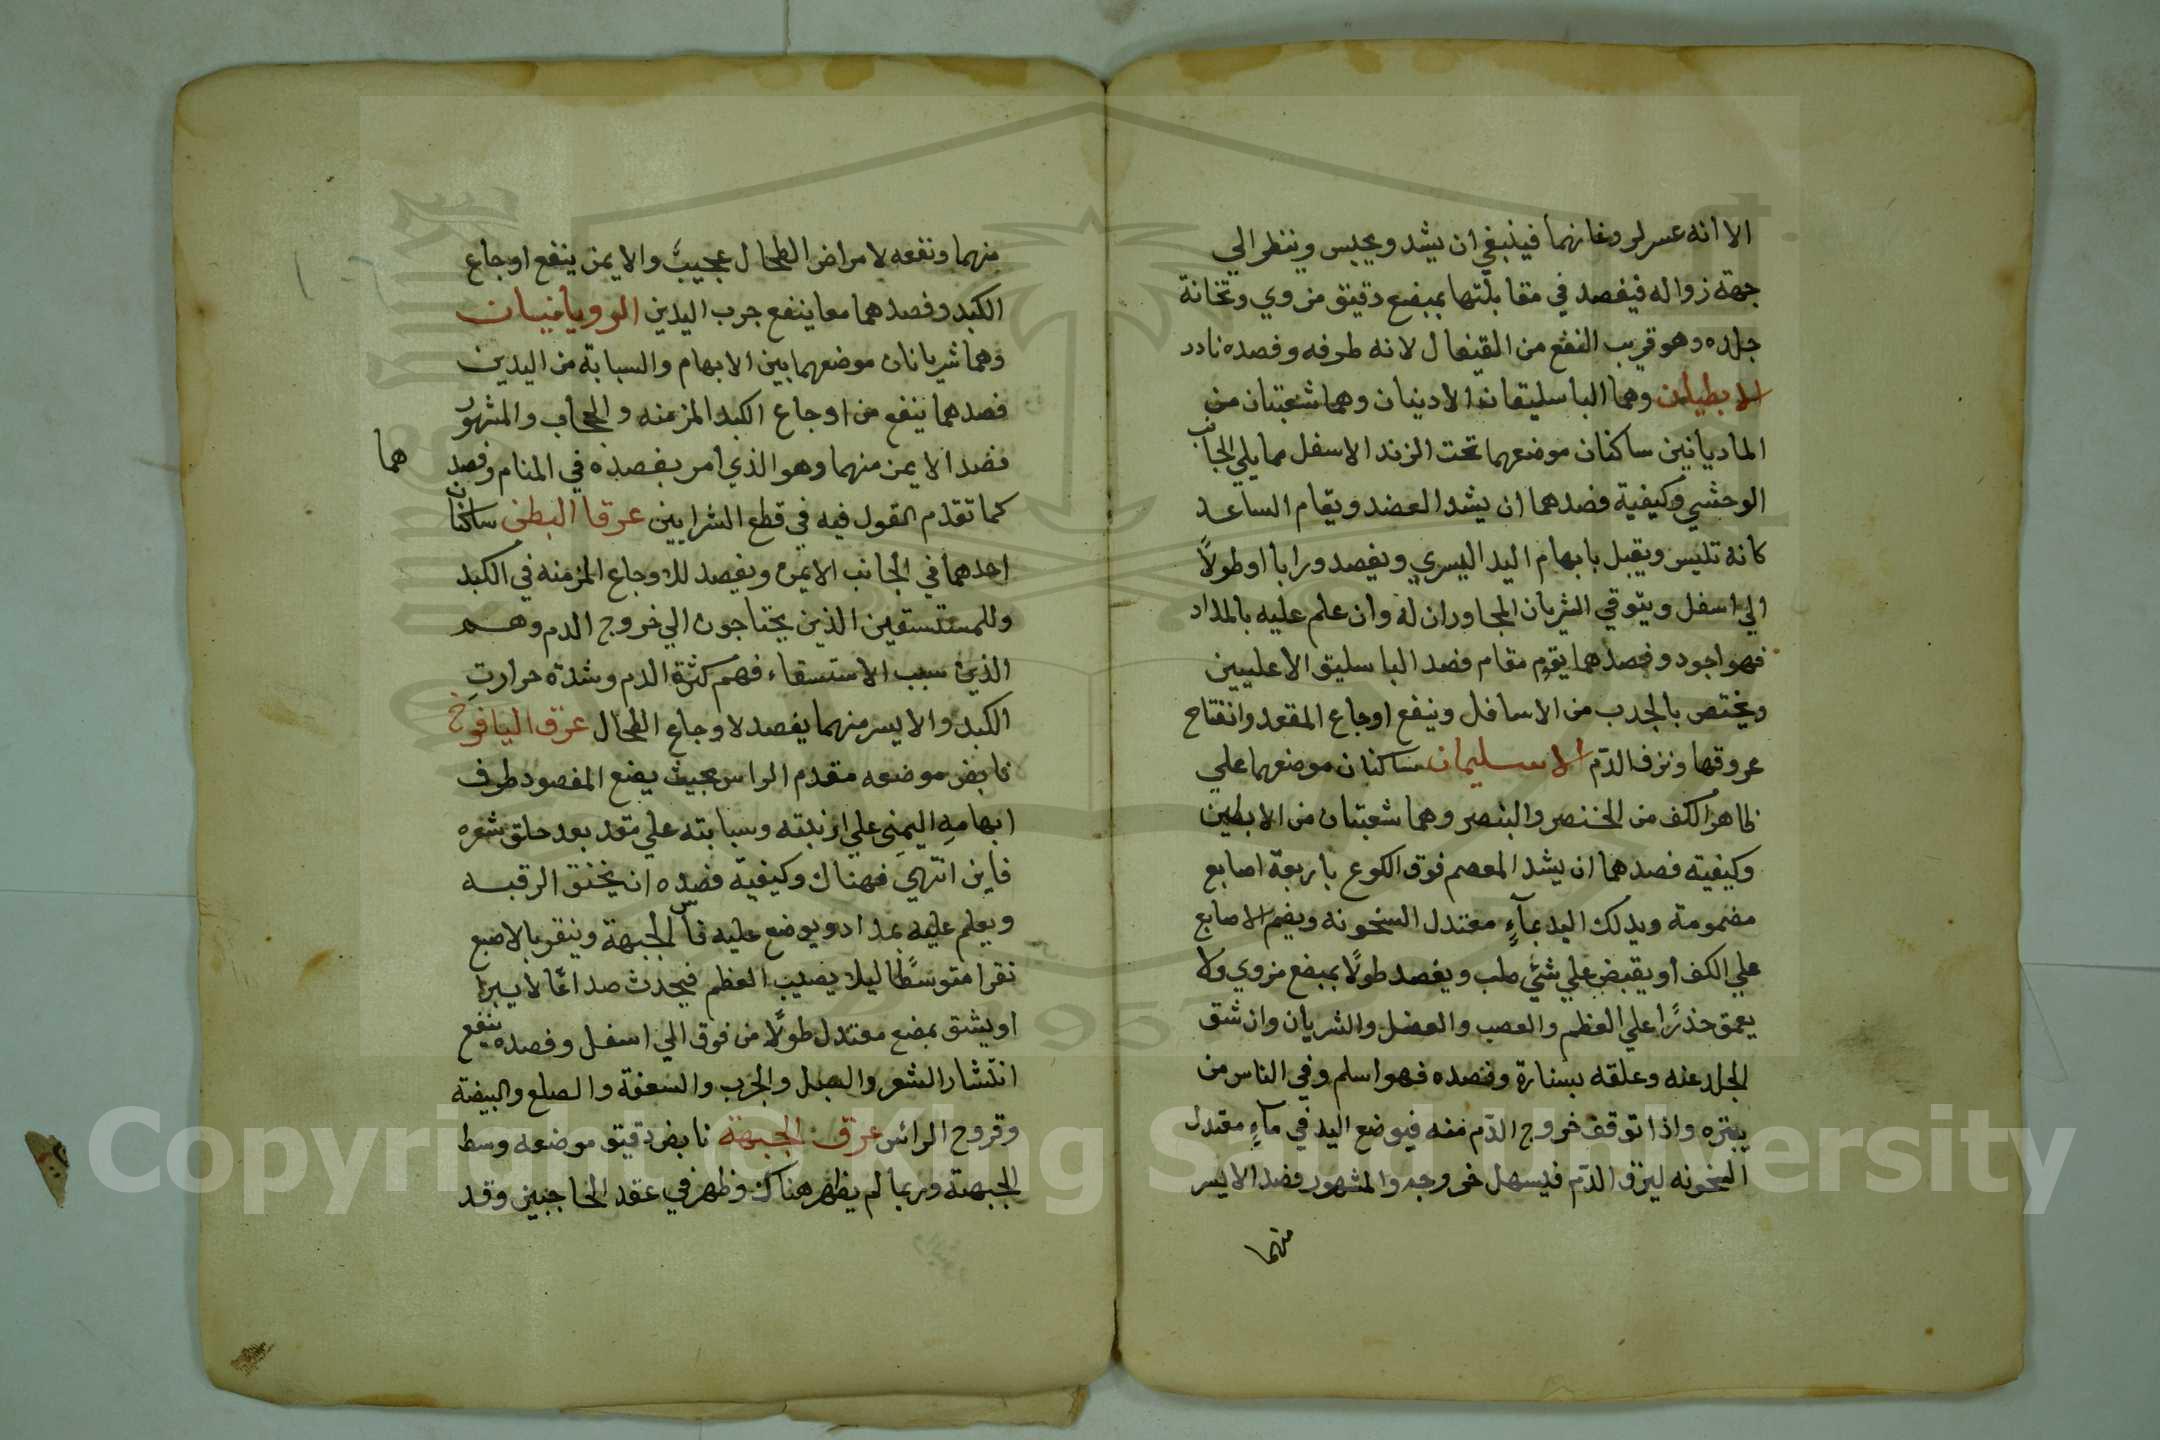 الا انه عسر لروغانهما فينبغي ان يشد ويحبس وينظر الي
جهة زواله فيفصد في مقابلتها بمبضع دقيق مزوي وثخانة
جلده وهو قريب النفع من القيفال لانه طرفه وفصده نادر
الابطيان وهما الباسليقان الادنيان وهما شعبتان من
الماديانين ساكنان موضعهما تحت الزند الاسفل مما يلي الجانب
الوحشي وكيفية فصدهما ان يشد العضد ويقام الساعد
كانه تليس ويقبل بابهام اليد اليسري ويفصد ورابا او طولاً
الي اسفل ويتوقي الشريان المجاوران له وان علم عليه بالمداد
فهو اجود وفصدهما يقوم مقام فصد الباسليق الاعليين
ويختص بالجذب من الاسافل وينفع اوجاع المقعد وانفتاح
عروقها ونزف الدم الاسيلمان ساكنان موضعهما علي
ظاهر الكف من الخنصر والبنصر وهما شعبتان من الابطين
وكيفيته فصدهما ان يشد المعصم فوق الكوع باربعة اصابع
مضمومة ويدلك اليد بمآءٍ معتدل السخونه ويضم الاصابع
علي الكف او يقبض علي شئي صلب ويفصد طولاً بمبضع مزوي ولا
يعمق حذرًا علي العظم والعصب والعضل والشريان وان شق
الجلد عنه وعلقه بسنارة وفصده فهو اسلم وفي الناس من
يبتره واذا توقف خروج الدم منه فيوضع اليد في مآءٍ معتدل
السخونه لينزف الدم فيسهل خروجه والمشهور فصد الايسر
منهما
منهما ونفعه لامراض الطحال عجيب والايمن ينفع اوجاع
الكبد وفصدهما معا ينفع جرب اليدين الرويانيان
وهما شريانان موضعهما بين الابهام والسبابة من اليدين
فصدهما ينفع من اوجاع الكبد المزمنه والحجاب والمشهور
فصد الايمن منهما وهو الذي امر بفصده في المنام وفصد هما
كما تقدم القول فيه في قطع الشرايين عرقا البطن ساكنان
احدهما في الجانب الايمن ويفصد للاوجاع المزمنه في الكبد
وللمستسقين الذين يحتاجون الي خروج الدم وهم
الذين سبب الاستسقاء فهم كثرة الدم وشدة حرارت
الكبد والايسر منهما يفصد لاوجاع الطحال عرق اليافوخ
نابض موضعه مقدم الراس بحيث يضع المفصود طرف
ابهامهِ اليمني علي ارنبته وسبابته علي مقد بعد حلق شعره
فاين انتهي فهناك وكيفية فصده ان يخنق الرقبه
ويعلم عليه بمداد ويوضع عليه فأس الجبهة وينقر بالاصبع
نقرا متوسطا ليلا يصيب العظم فيحدث صداعًا لا يبرا
او يشق بمبضع معتدل طولاً من فوق الي اسفل وفصده ينفع
انتشار الشعر والصبل والجرب والسعفة والصلع والبيضة
وقروح الرائس عرق الجبهة نابض دقيق موضعه وسط
الجبهة وربما لم يظهر هناك وظهر في عقد الحاجبين وقد
Copyright © King Saud University